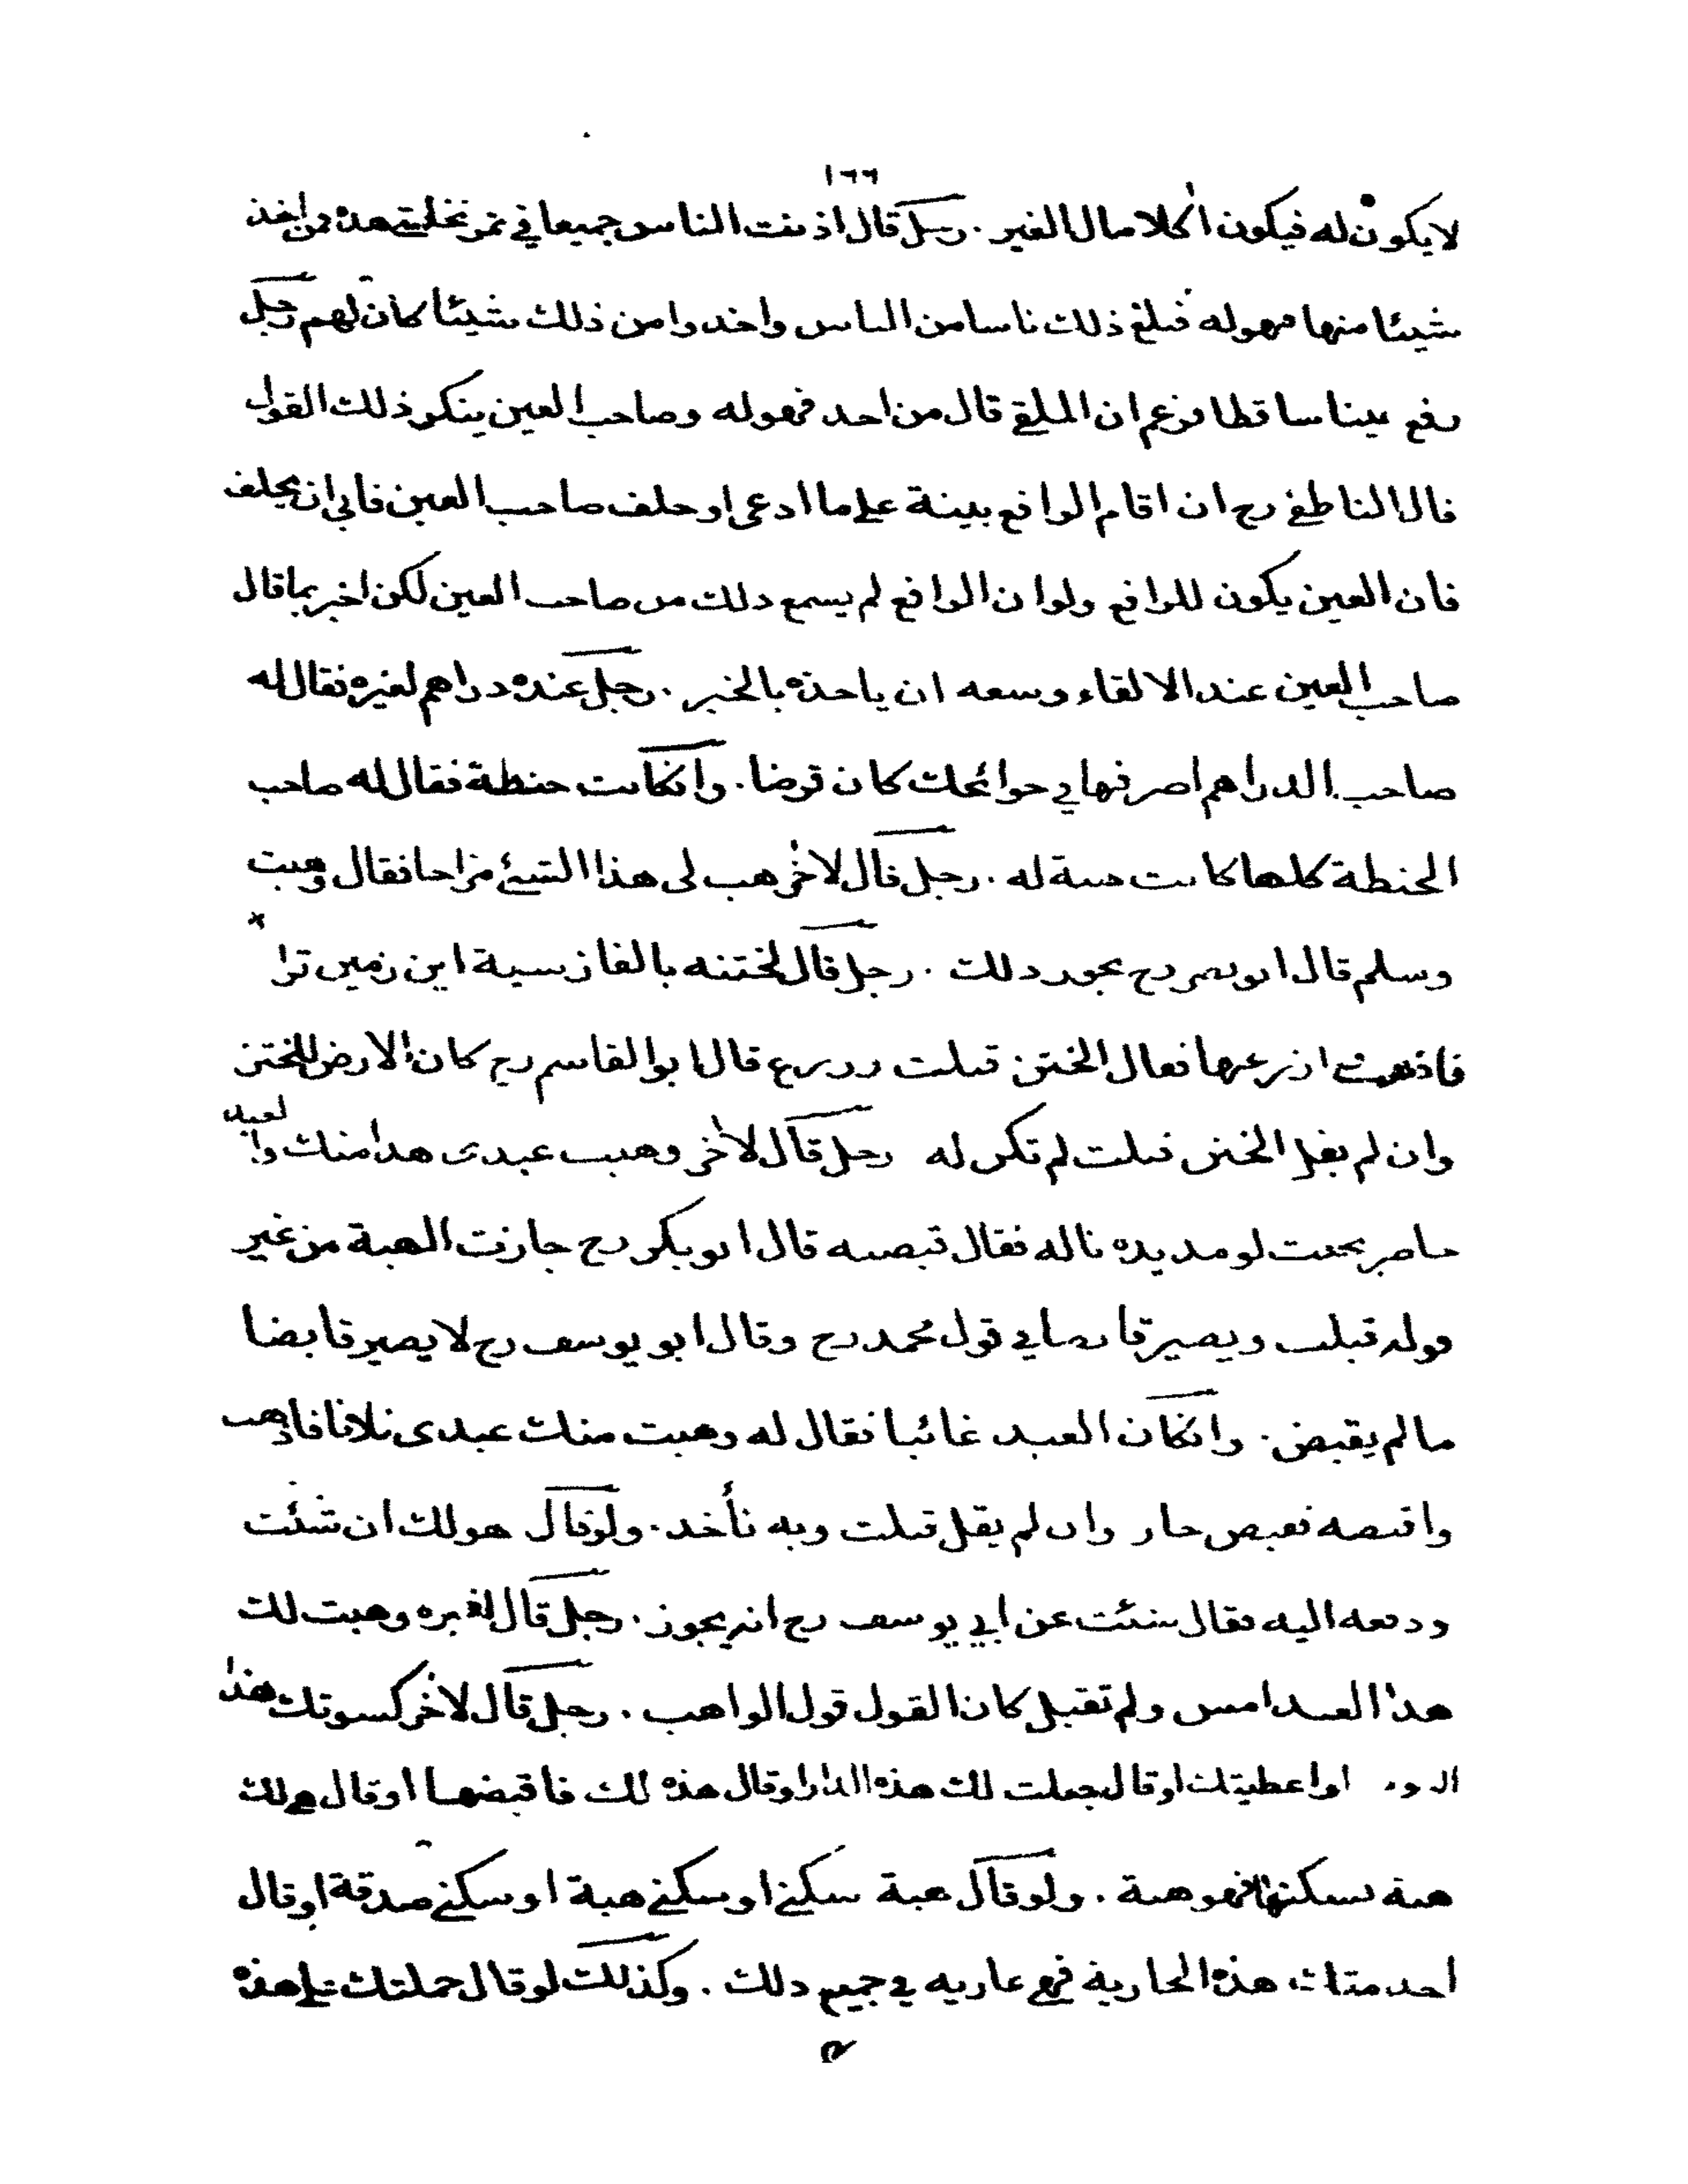 ١٦٦
لا يكون له فيكون اكلا مال الغير . رجل قال اذنت الناس جميعا في تمر نخلتي هذه من اخذ
شيئا منها فهو له فبلغ ذلك ناسا من الناس واخذوا من ذلك شيئا كان لهم رجل
رفع عينا ساقطا وزعم ان الملقي قال من اخذ فهو له وصاحب العين ينكر ذلك القول
قال الناطفي رح ان اقام الرافع بينة على ما ادعى او حلف صاحب العين فابى ان يحلف
فان العين يكون للرافع ولو ان الرافع لم يسمع ذلك من صاحب العين لكن اخبر بما قال
صاحب العين عند الالقاء وسعه ان ياخذه بالخبر . رجل عنده دراهم لغيره فقال له
صاحب الدراهم اصرفها في حوائجك كان قرضا . وانكانت حنطة فقال له صاحب
الحنطة كلها كانت هبة له . رجل قال لاخر هب لى هذا الشئ مزاحا فقال وهبت
وسلم قال ابو نصر رح يجوز ذلك . رجل قال لختنه بالفارسية اين زمين ترا
فاذهب ازرعها فقال الختن قبلت وزرع قال ابو القاسم رح كان الارض للختن
وان لم يقل الختن قبلت لم تكن له رجل قال لاخر وهبت عبدى هذا منك والعبد
حاضر بحيث لو مد يده ناله فقال قبضته قال ابو بكر رح جازت الهبة من غير
قوله قبلت ويصير قابضا في قول محمد رح وقال ابو يوسف رح لا يصير قابضا
مالم يقبض . وانكان العبد غائبا فقال له وهبت منك عبدى فلانا فاذهب
واقبضه فقبض جاز وان لم يقل قبلت وبه نأخذ . ولو قال هو لك ان شئت
ودفعه اليه فقال شئت عن ابي يوسف رح انه يجوز . رجل قال لغيره وهبت لك
هذا العبد امس ولم تقبل كان القول قول الواهب . رجل قال لاخر كسوتك هذا
او اعطيتك او قال جعلت لك هذه الدار او قال هذه لك فاقبضها او قال هي لك
هبة تسكنها فهو هبة . ولو قال هبة سكنى او سكنى هبة او سكنى صدقة او قال
اخدمتك هذه الجارية فهي عاريه في جميع ذلك . وكذلك لو قال حملتك على هذه